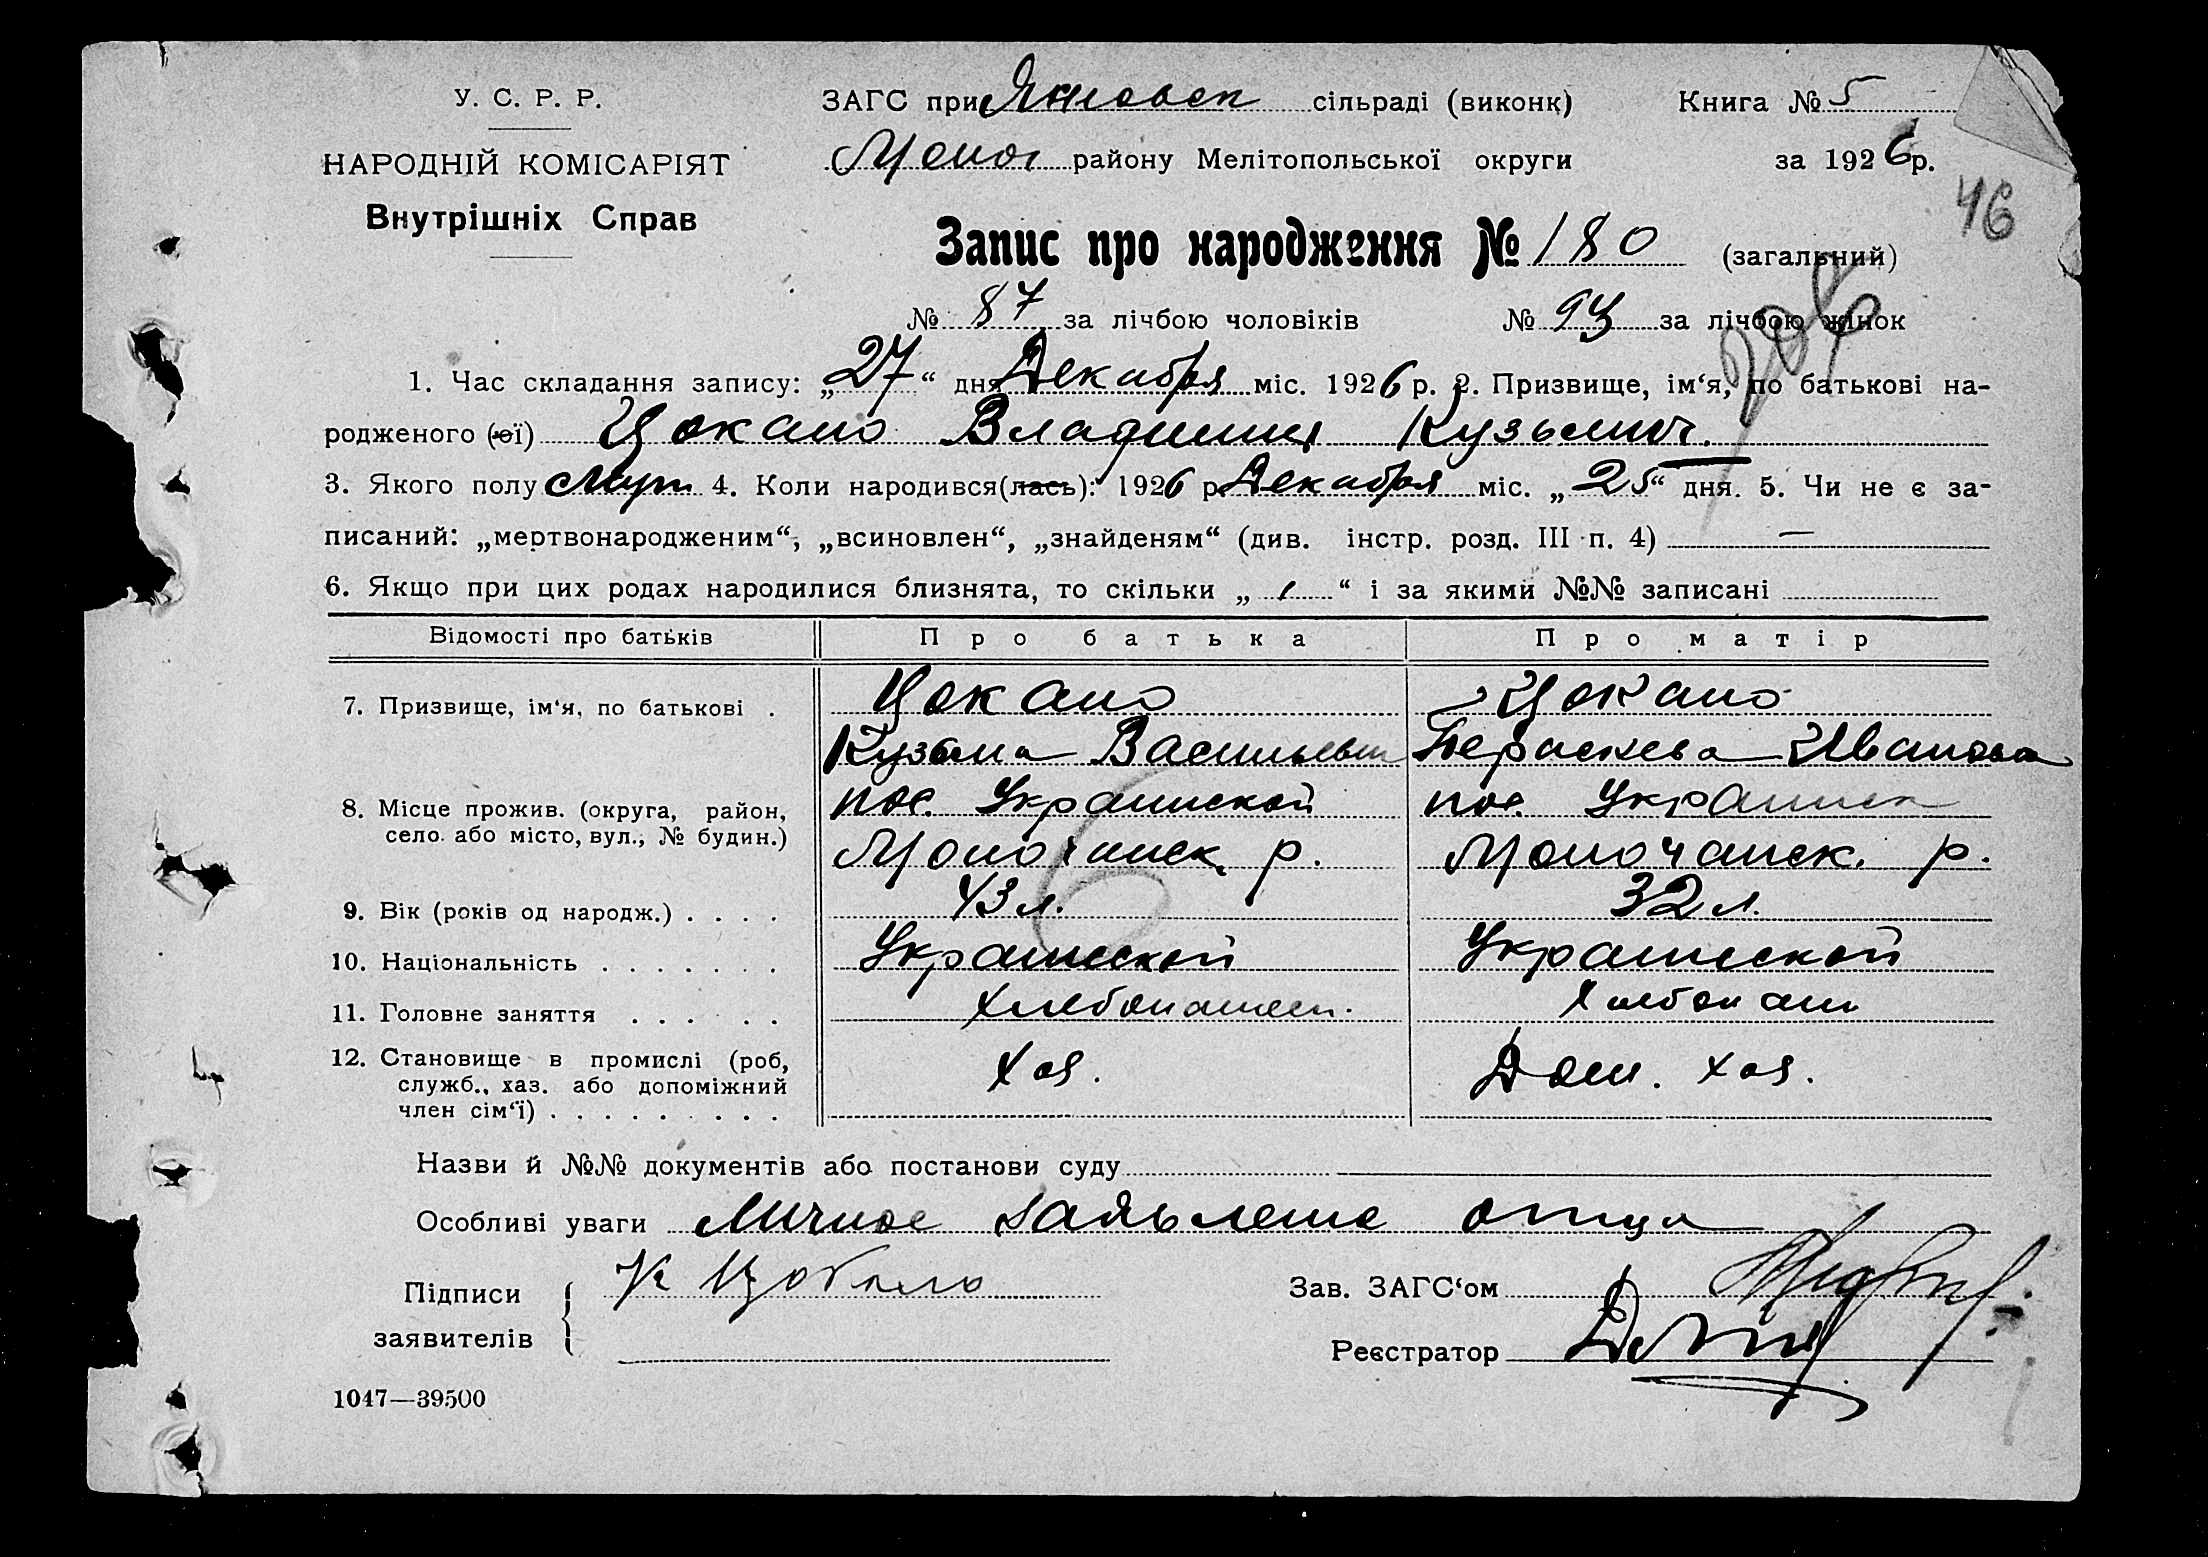 У. С. Р. Р.
НАРОДНІЙ КОМІСАРІЯТ
Внутрішніх Справ
ЗАГС при сільраді (виконк) Книга № 5
району Мелітопольської округи за 1926 р.
46
Запис про народження № 180 (загальний)
№ 87 за лічбою чоловіків № 93 за лічбою жінок
1. Час складання запису: „27“ дня Декабря міс. 1926 р. 2. Призвище, ім‘я, по батькові на-
родженого (юї) Цокало Владимир Кузьмич.
3. Якого полу Муж 4. Коли народився(лась): 1926 р. Декабря міс. „25“ дня. 5. Чи не є за-
писаний: „мертвонародженим“, „всиновлен“, „знайденям“ (див. інстр. розд. III п. 4) —
6. Якщо при цих родах народилися близнята, то скільки „ “ і за якими №№ записані
Відомості про батьків Про батька Про матір
7. Призвище, ім‘я, по батькові . Цокало Цокало
Кузьма Васильевич Пераскева Ивановна
8. Місце прожив. (округа, район, пос. Украинской пос. Украинск
село або місто, вул., № будин.) Молочанск. р. Молочанск. р.
9. Вік (років од народж.) . . . . 43 л. 32 л.
10. Національність . . . . . . . Украинской Украинской
11. Головне заняття . . . . . . Хлебопашец. Хлебопаш
12. Становище в промислі (роб, Хоз. Дом. хоз.
служб., хаз. або допоміжний
член сім‘ї) . . . . . . . . .
Назви й №№ документів або постанови суду
Особливі уваги Личное заявление отца
Підписи К Цокало Зав. ЗАГС‘ом
заявителів Реєстратор
1047—39500